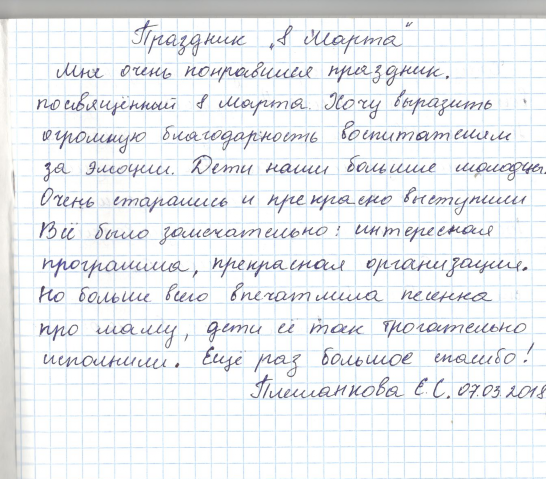 Праздник „8 Марта"
Мне очень понравился праздник,
посвящённый 8 марта. Хочу выразить
огромную благодарность воспитателям
за эмоции. Дети наши большие молодцы.
Очень старались и прекрасно выступили
Всё было замечательно: интересная
программа, прекрасная организация.
Но больше всего впечатлила песенка
про маму, дети её так трогательно
исполнили. Ещё раз большое спасибо!
Плешанкова Е.С. 07.03.2018